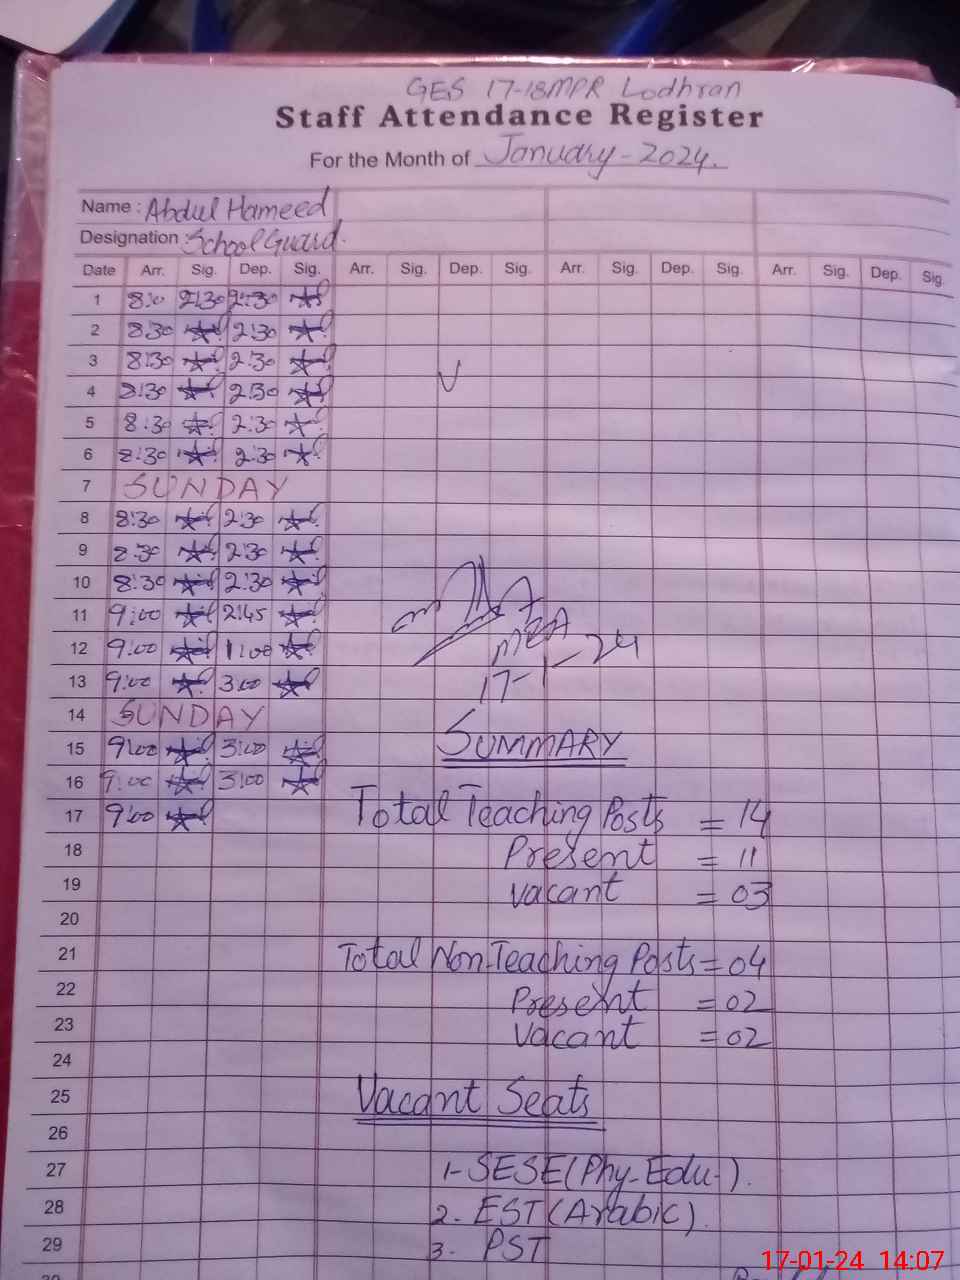 GES 17-18MPR Lodhran
Staff Attendance Register
For the Month of January-2024.
Name : Abdul Hameed
Designation : School Guard.
Date Arr. Sig. Dep. Sig. Arr. Sig. Dep. Sig. Arr. Sig. Dep. Sig. Arr. Sig. Dep. Sig.
1 8:0 2:30 2:30
2 8:30 2:30
3 8:30 2:30
4 8:30 2:30
5 8:30 2:30
6 8:30 2:30
7 SUNDAY
8 8:30 2:30
9 8:30 2:30
10 8:30 2:30
11 9:00 2:45
12 9:00 1:00
13 9:00 3:00
14 SUNDAY
15 9:00 3:00
16 9:00 3:00
17 9:00
18
19
20
21
22
23
24
25
26
27
28
29
30
MEA
17-1-24
SUMMARY
Total Teaching Posts = 14
Present = 11
Vacant = 03
Total Non-Teaching Posts = 04
Present = 02
Vacant = 02
Vacant Seats
1- SESE (Phy-Edu-).
2. EST (Arabic).
3- PST
17-01-24 14:07